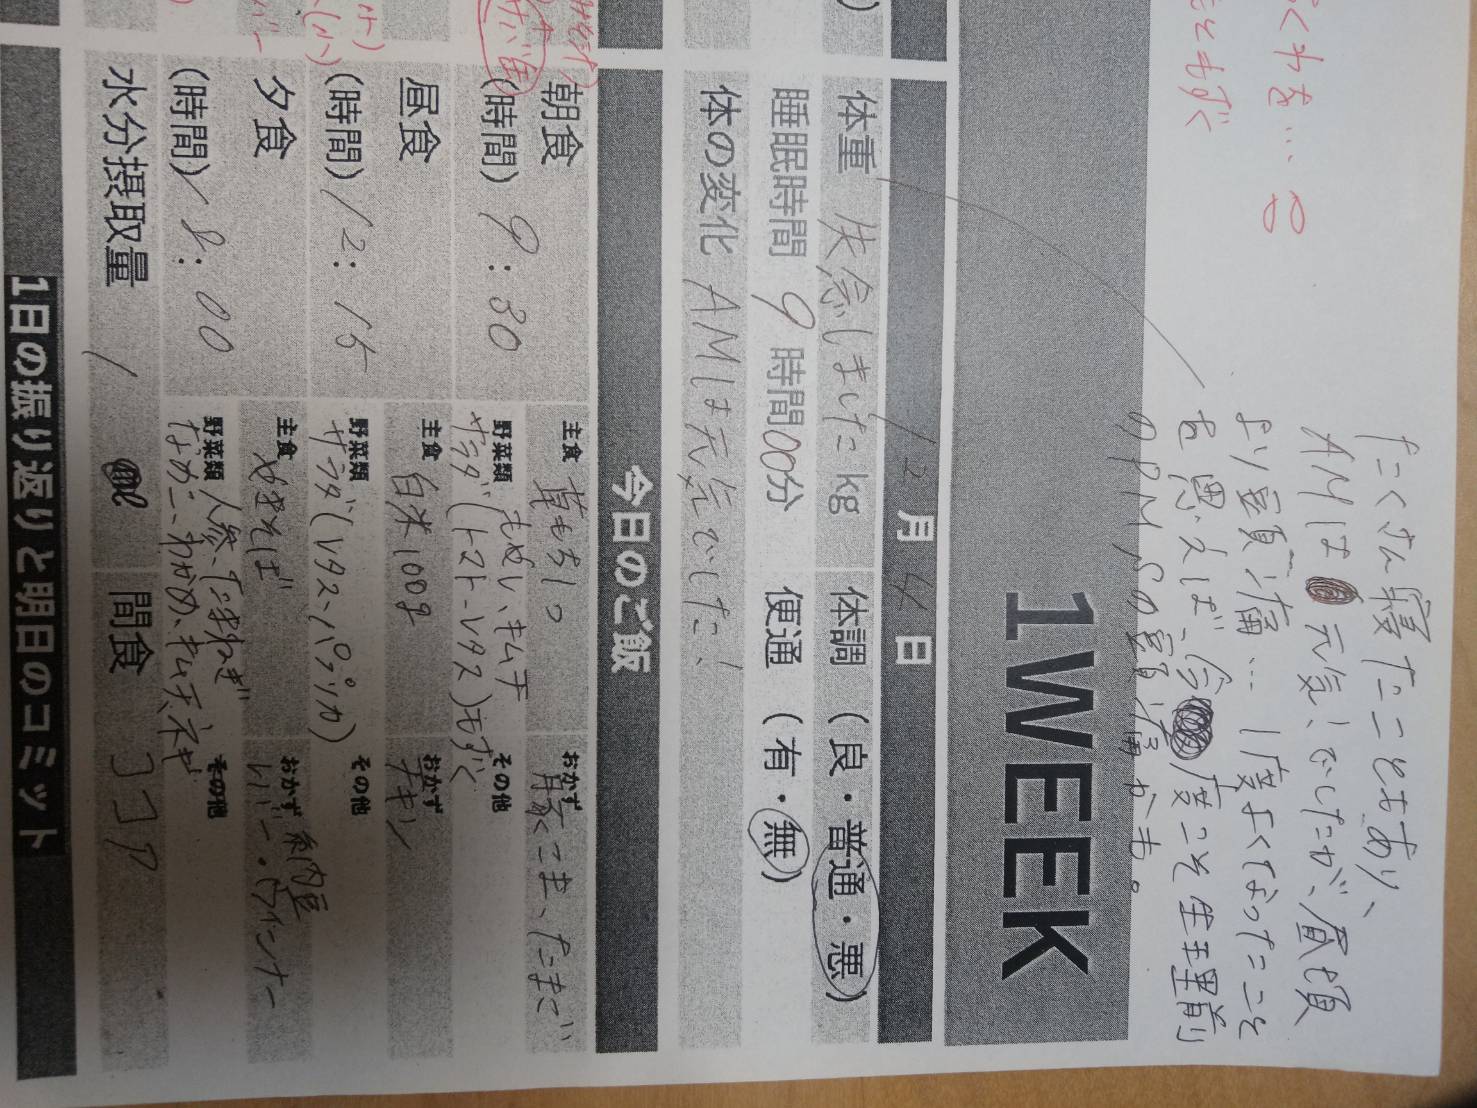 くわを…
もともずく
たくさん寝たこともあり、
AMは 元気!でしたが、昼頃
より頭痛… 1度よくなったことを
思えば、今度こそ生理前
のPMSの頭痛かも。
1WEEK
12月4日
体重 失念しました kg 体調 (良・普通・悪)
睡眠時間 9 時間 00分 便通 (有・無)
体の変化 AMは元気でした!
今日のご飯
朝食
主食 草もち1つ
おかず 豚こま、たまご
(時間) 9:30
野菜類 もやし、キムチ
サラダ(トマト・レタス)もずく
その他
昼食
主食 白米100g
おかず チキン
(時間) 12:15
野菜類 サラダ(レタス、パプリカ)
その他
夕食
主食 やきそば
おかず 納豆
レバー・ウインナー
(時間) 18:00
野菜類 人参、玉ねぎ
なめこ、わかめ、キムチ、ネギ
その他
水分摂取量 1 ℓ
間食 ココア
1日の振り返りと明日のコミット